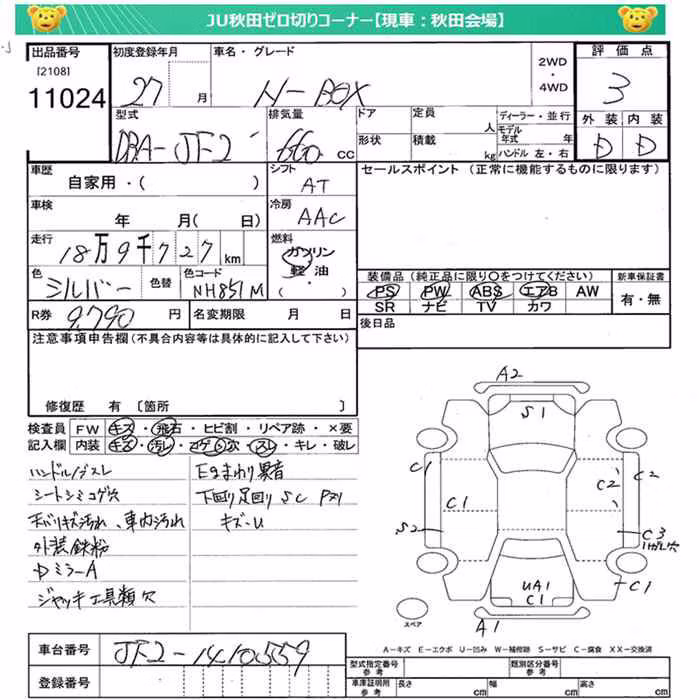 JU秋田ゼロ切りコーナー【現車:秋田会場】
出品番号
[2108]
11024
初度登録年月
27
月
車名・グレード
N-BOX
2WD
・
4WD
評価点
3
外装 内装
D D
型式
DBA-JF2
排気量
660 cc
ドア
形状
定員
人
積載
kg
ディーラー・並行
モデル年式 年
ハンドル 左・右
車歴
自家用・( )
シフト
AT
セールスポイント(正常に機能するものに限ります)
車検
年 月( 日)
冷房
AAC
走行
18万9千727km
燃料
ガソリン
軽油
・( )
色
シルバー
色替
色コード
NH851M
装備品(純正品に限り○をつけてください)
PS PW ABS エアB AW
SR ナビ TV カワ
新車保証書
有・無
R券
9,790 円
名変期限 月 日
後日品
注意事項申告欄(不具合内容等は具体的に記入して下さい)
修復歴 有 〔箇所 〕
検査員記入欄
FW キズ・飛石・ヒビ割・リペア跡・×要
内装 キズ・汚レ・コゲ・穴・スレ・キレ・破レ
ハンドルノブスレ
シートシミコゲ穴
天バリキズ汚れ、車内汚れ
外装鉄粉
Dミラー A
ジャッキ工具類欠
Egまわり異音
下回り足回りSC
キズ・U
A2
S1
C1
C1
S2
C2
C2
C3
C1
UA1
C1
A1
スペア
A-キズ E-エクボ U-凹み W-補修跡 S-サビ C-腐食 XX-交換済
車台番号
JF2-1410559
登録番号
型式指定番号
参考
類別区分番号
参考
車庫証明用
参考
長さ cm
幅 cm
高さ cm